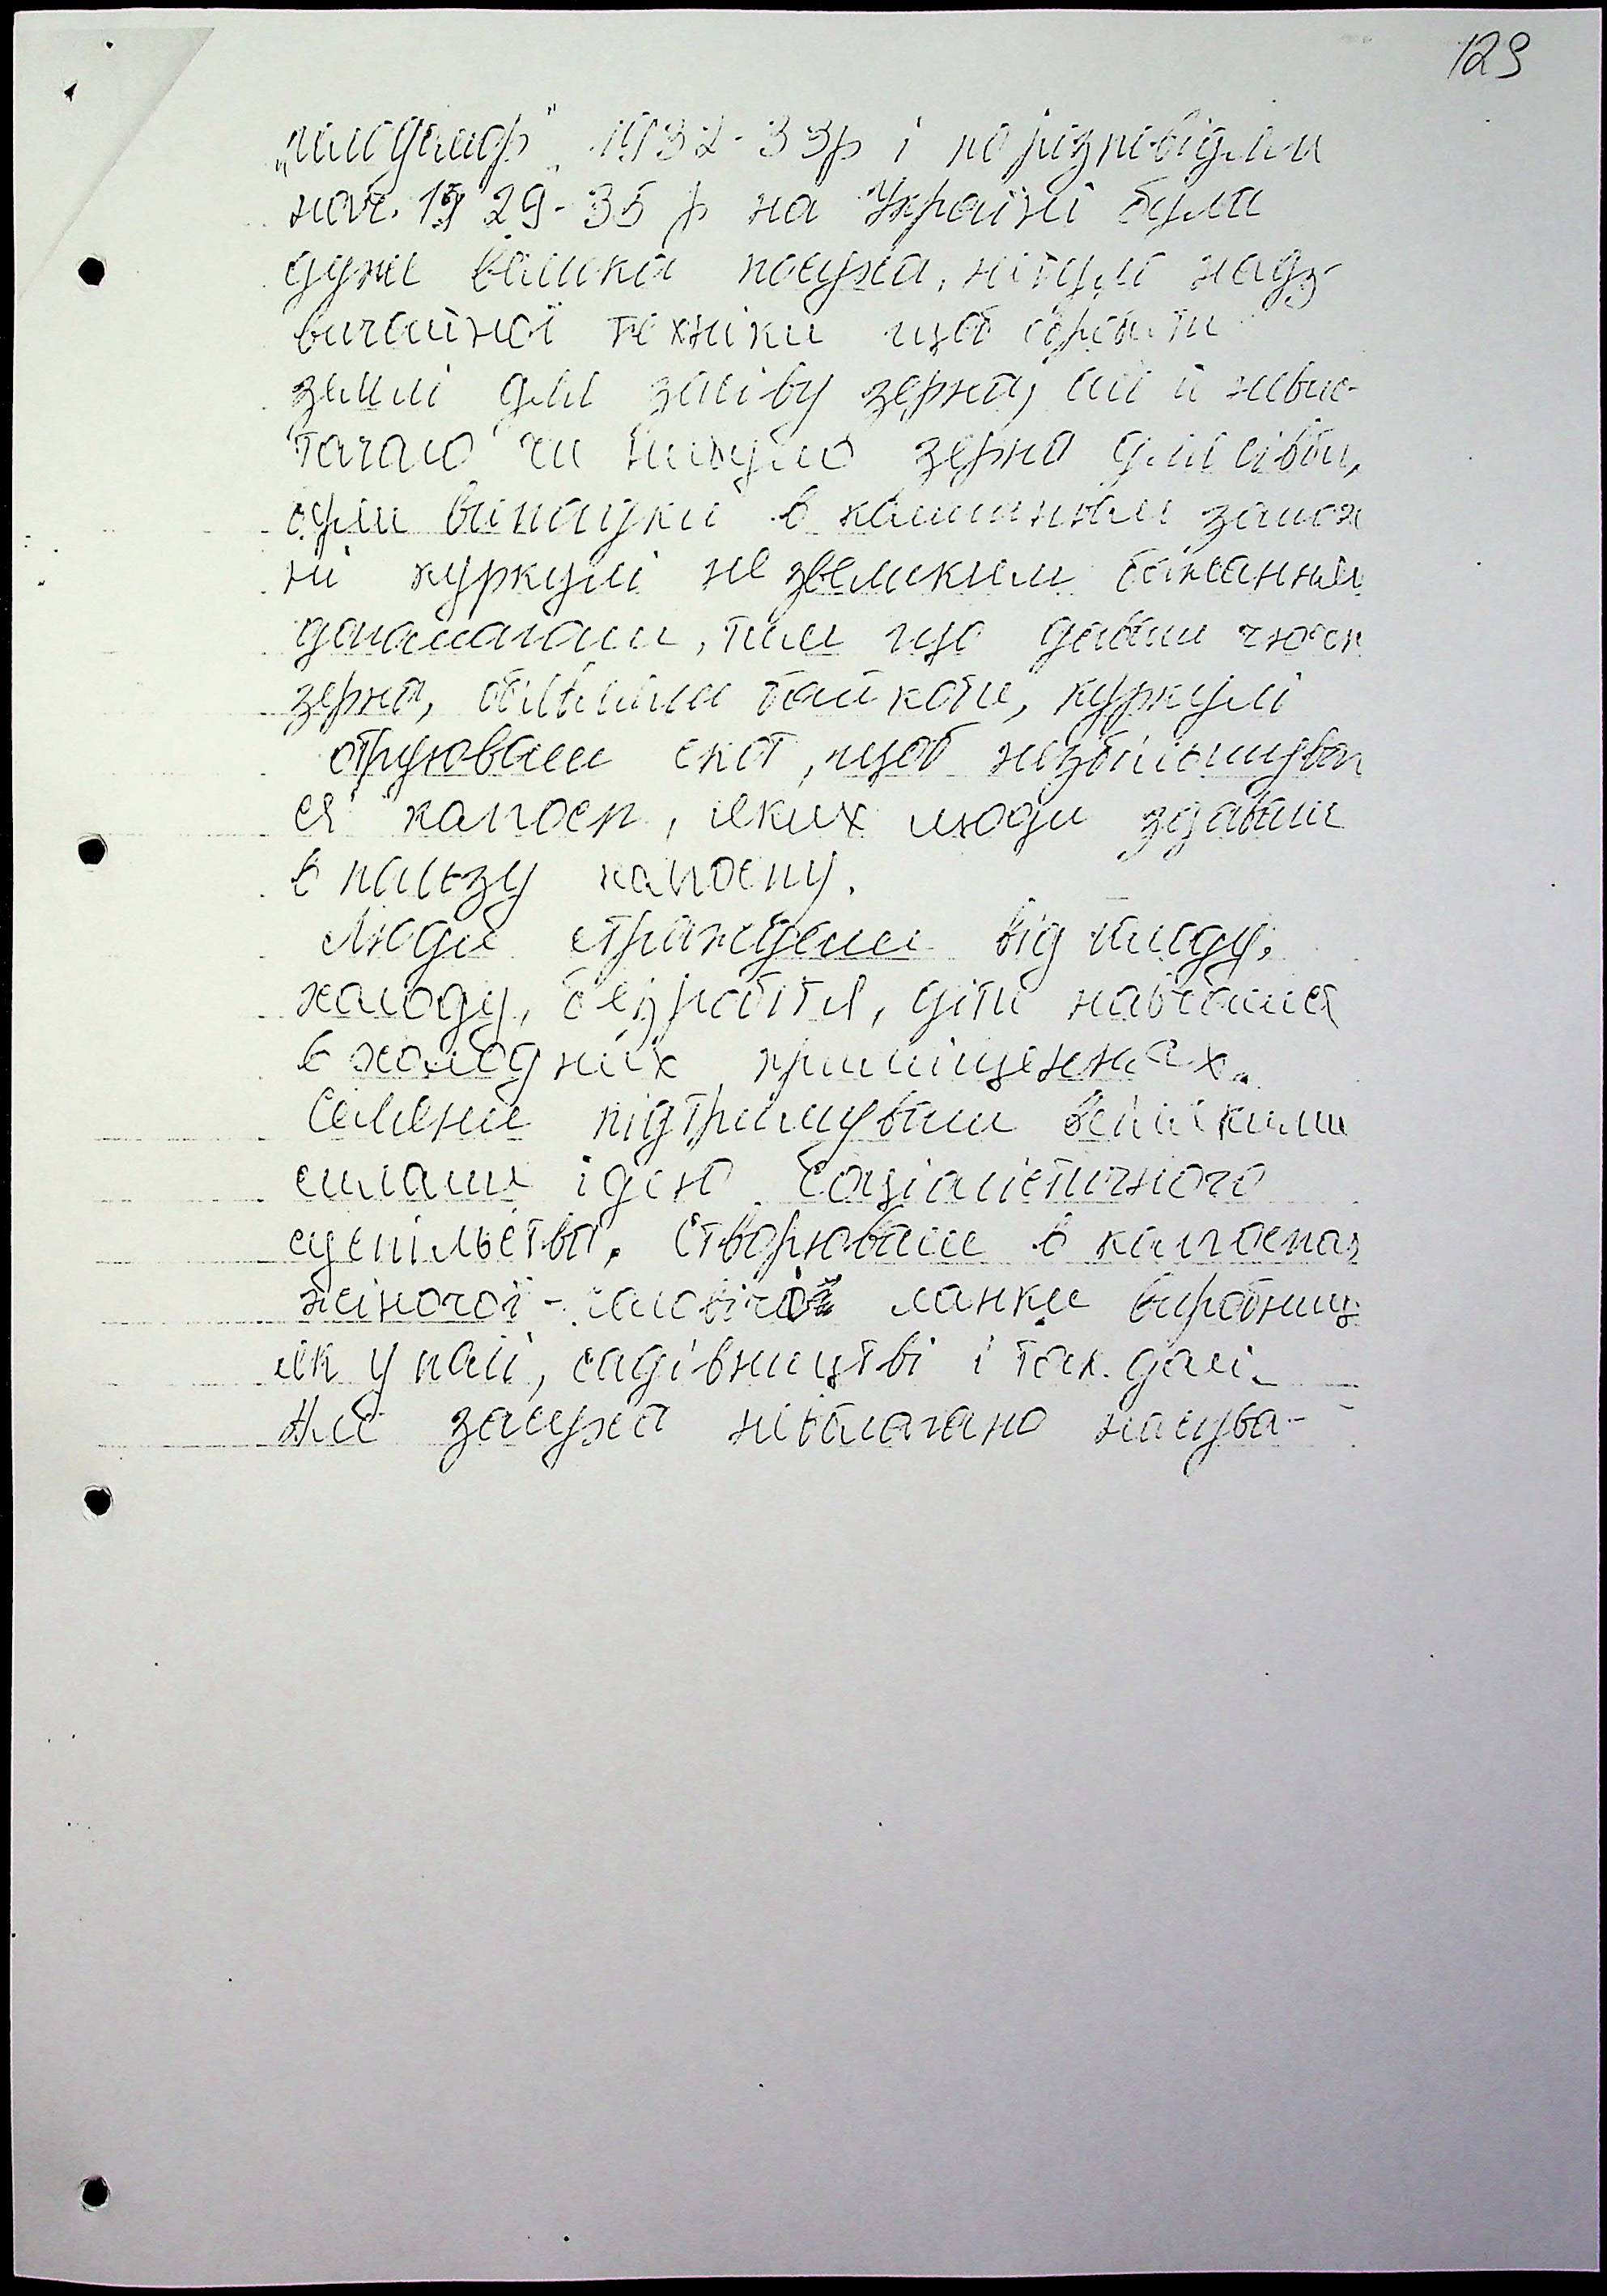 129
„Голодомор" 1932-33р і по різнвідам
поч. 1929-35 р на Україні була
дуже велика посуха, небуло надз-
вичайної техніки щоб обробити
землі для засіву зерна, але й невис-
тачало чи небуло зерна для сівби,
були випадки в колишньому замож
ні куркулі не звеликим бажанням
допомагали, тим що давали
зерно, байкоти, куркулі
отруювали скот, щоб незбільшував
ся колгосп, яких люди здавали
в пользу колгоспу.
Люди страждали від голоду,
холоду, безробіття, діти навчались
в холодних приміщеннах.
Селяни підтримували всілякими
силами ідею Соціалістичного
суспільства. Створювали в колгоспах
жіночої - чоловічої ланки виробниц
як у полі, садівництві і так. далі.
Але засуха невблагано насува-